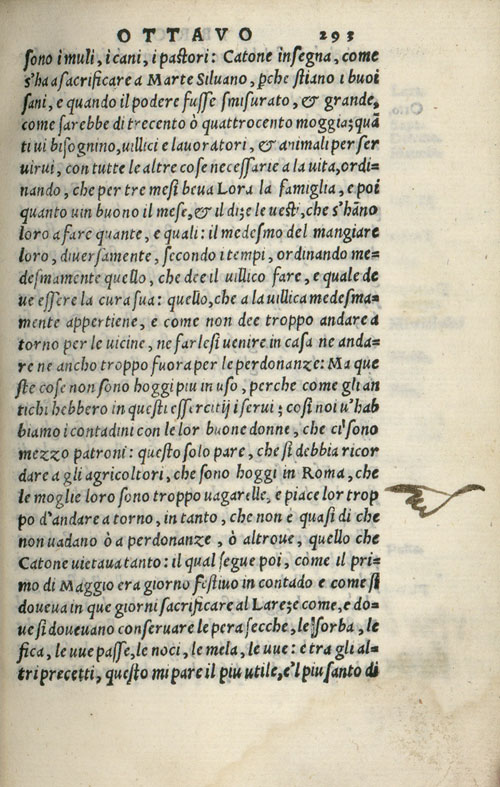 OTTAVO 293
sono i muli, i cani, i pastori: Catone insegna, come
s'ha a sacrificare a Marte Siluano, ꝑche stiano i buoi
sani, e quando il podere fusse smisurato, & grande,
come sarebbe di trecento ò quattrocento moggia; quã
ti ui bisognino, uillici e lauoratori, & animali per ser
uirui, con tutte le altre cose necessarie a la uita, ordi-
nando, che per tre mesi beua Lora la famiglia, e poi
quanto uin buono il mese, & il dì; e le uesti, che s'hãno
loro a fare quante, e quali: il medesmo del mangiare
loro, diuersamente, secondo i tempi, ordinando me-
desmamente quello, che dee il uillico fare, e quale de
ue essere la cura sua: quello, che a la uillica medesma-
mente appertiene, e come non dee troppo andare a
torno per le uicine, ne farlesi uenire in casa ne anda-
re ne ancho troppo fuora per le perdonanze: Ma que
ste cose non sono hoggi piu in uso, perche come gli an
tichi hebbero in questi essercitij i serui; cosi noi u'hab
biamo i contadini con le lor buone donne, che ci sono
mezzo patroni: questo solo pare, che si debbia ricor
dare a gli agricoltori, che sono hoggi in Roma, che
le moglie loro sono troppo uagarelle, e piace lor trop
po d'andare a torno, in tanto, che non è quasi dì che
non uadano ò a perdonanze, ò altroue, quello che
Catone uietaua tanto: il qual segue poi, come il pri-
mo di Maggio era giorno festiuo in contado e come si
doueua in que giorni sacrificare al Lare; e come, e do-
ue si doueuano conseruare le pera secche, le sorba, le
fica, le uue passe, le noci, le mela, le uue: e tra gli al-
tri precetti, questo mi pare il piu utile, e'l piu santo di